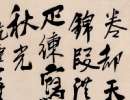 卷却天
錦段從
疋練寫
秋光